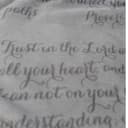 paths Prove
Trust in the Lord
all your heart, and
lean not on your
understanding